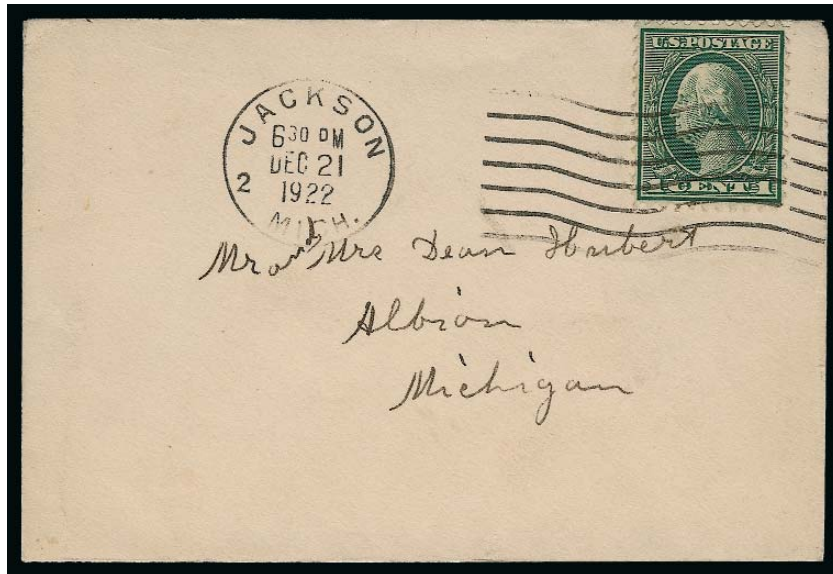 U.S. POSTAGE
1 CENT 1
JACKSON
6 30 PM
DEC 21
1922
2
MICH.
Mr and Mrs Dean Hubert
Albion
Michigan